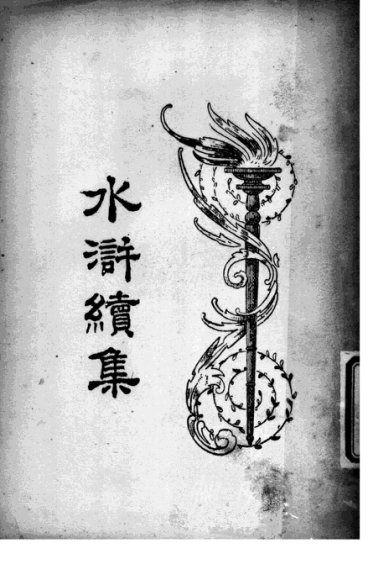 水滸續集